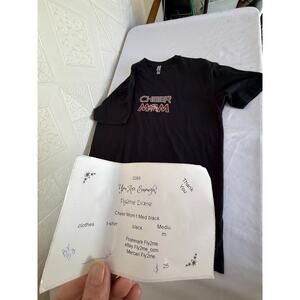 CHEER
MOM
You Are Enough!
Thank
You
Cheer Mom t Med black
clothes
t-shirt
black
Mediu
m
Poshmark Fly2me
eBay Fly2me_com
Mercari Fly2me
25